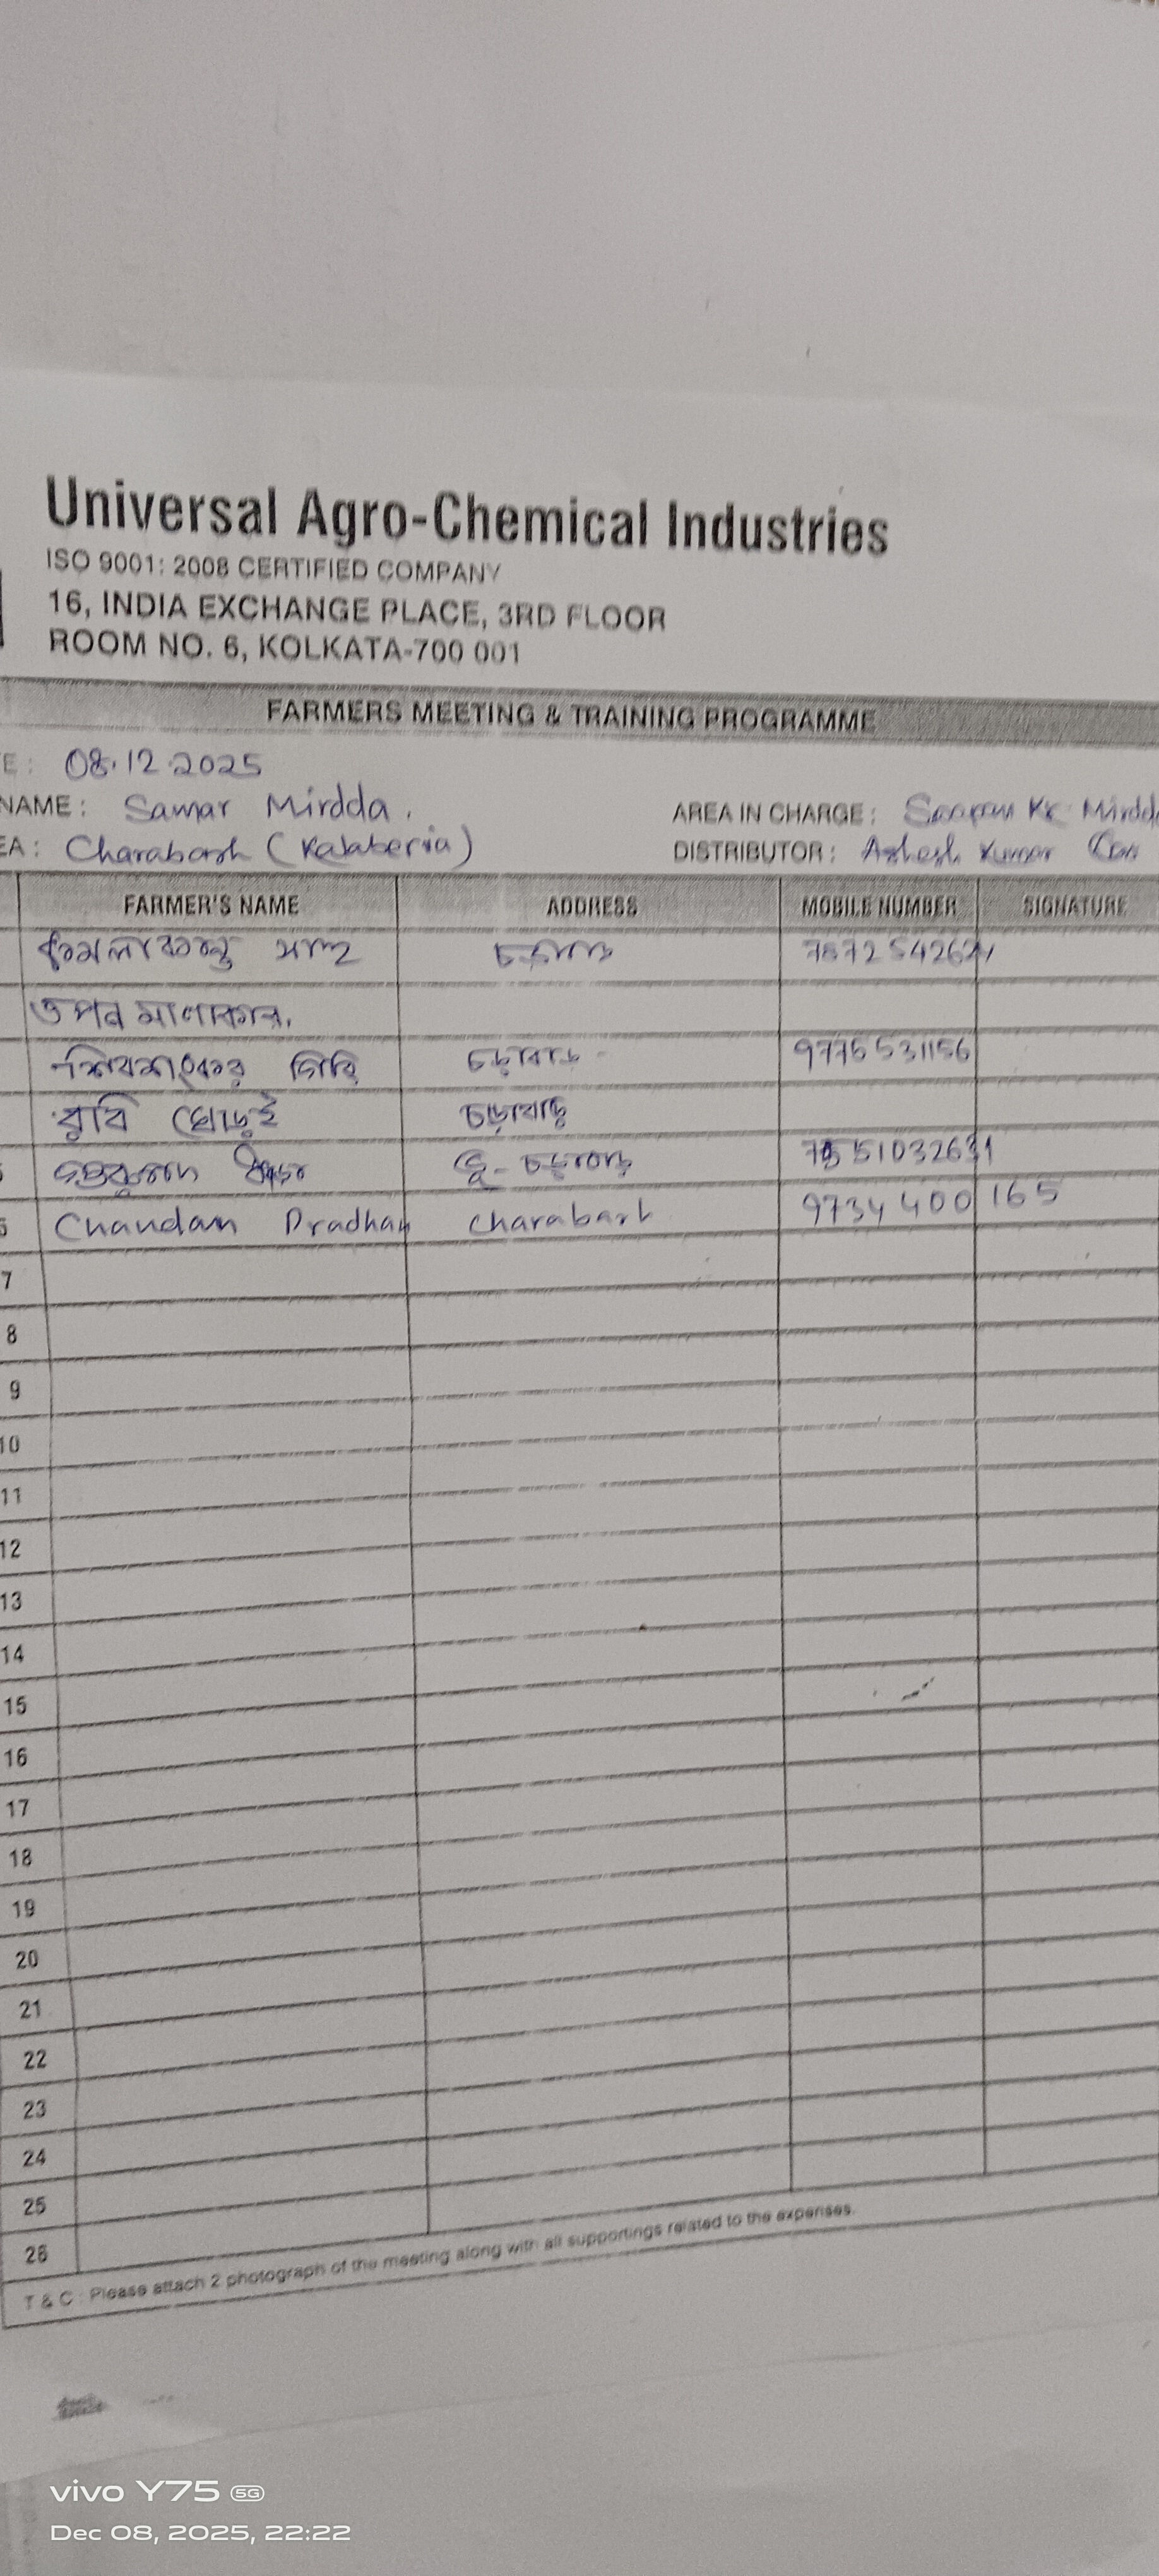 Universal Agro-Chemical Industries
ISO 9001: 2008 CERTIFIED COMPANY
16, INDIA EXCHANGE PLACE, 3RD FLOOR
ROOM NO. 6, KOLKATA-700 001
FARMERS MEETING & TRAINING PROGRAMME
E: 08.12.2025
NAME: Samar Mirdda. AREA IN CHARGE: Kr. Mirdd
EA: Charabarh (Kalaberia) DISTRIBUTOR: Ashesh Kumar
FARMER'S NAME ADDRESS MOBILE NUMBER SIGNATURE
কমলাকান্ত
তপন মালাকার.
শিবশংকর গিরি চড়াবাড় 9775531156
রবি ঘোড়ই চড়াবাড়
6 Chandan Pradhan Charabarh 9734400165
7
8
9
10
11
12
13
14
15
16
17
18
19
20
21
22
23
24
25
26
T & C : Please attach 2 photograph of the meeting along with all supportings related to the expenses.
vivo Y75 5G
Dec 08, 2025, 22:22